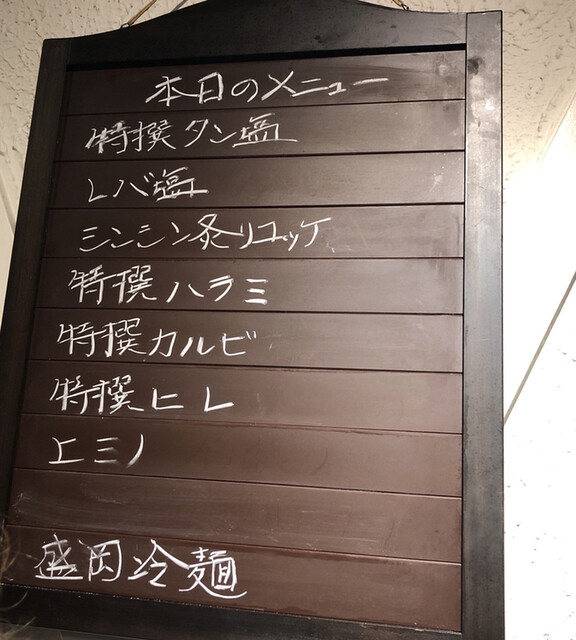 本日のメニュー
特撰タン塩
レバ塩
シンシン炙リユッケ
特撰ハラミ
特撰カルビ
特撰ヒレ
上ミノ
盛岡冷麺